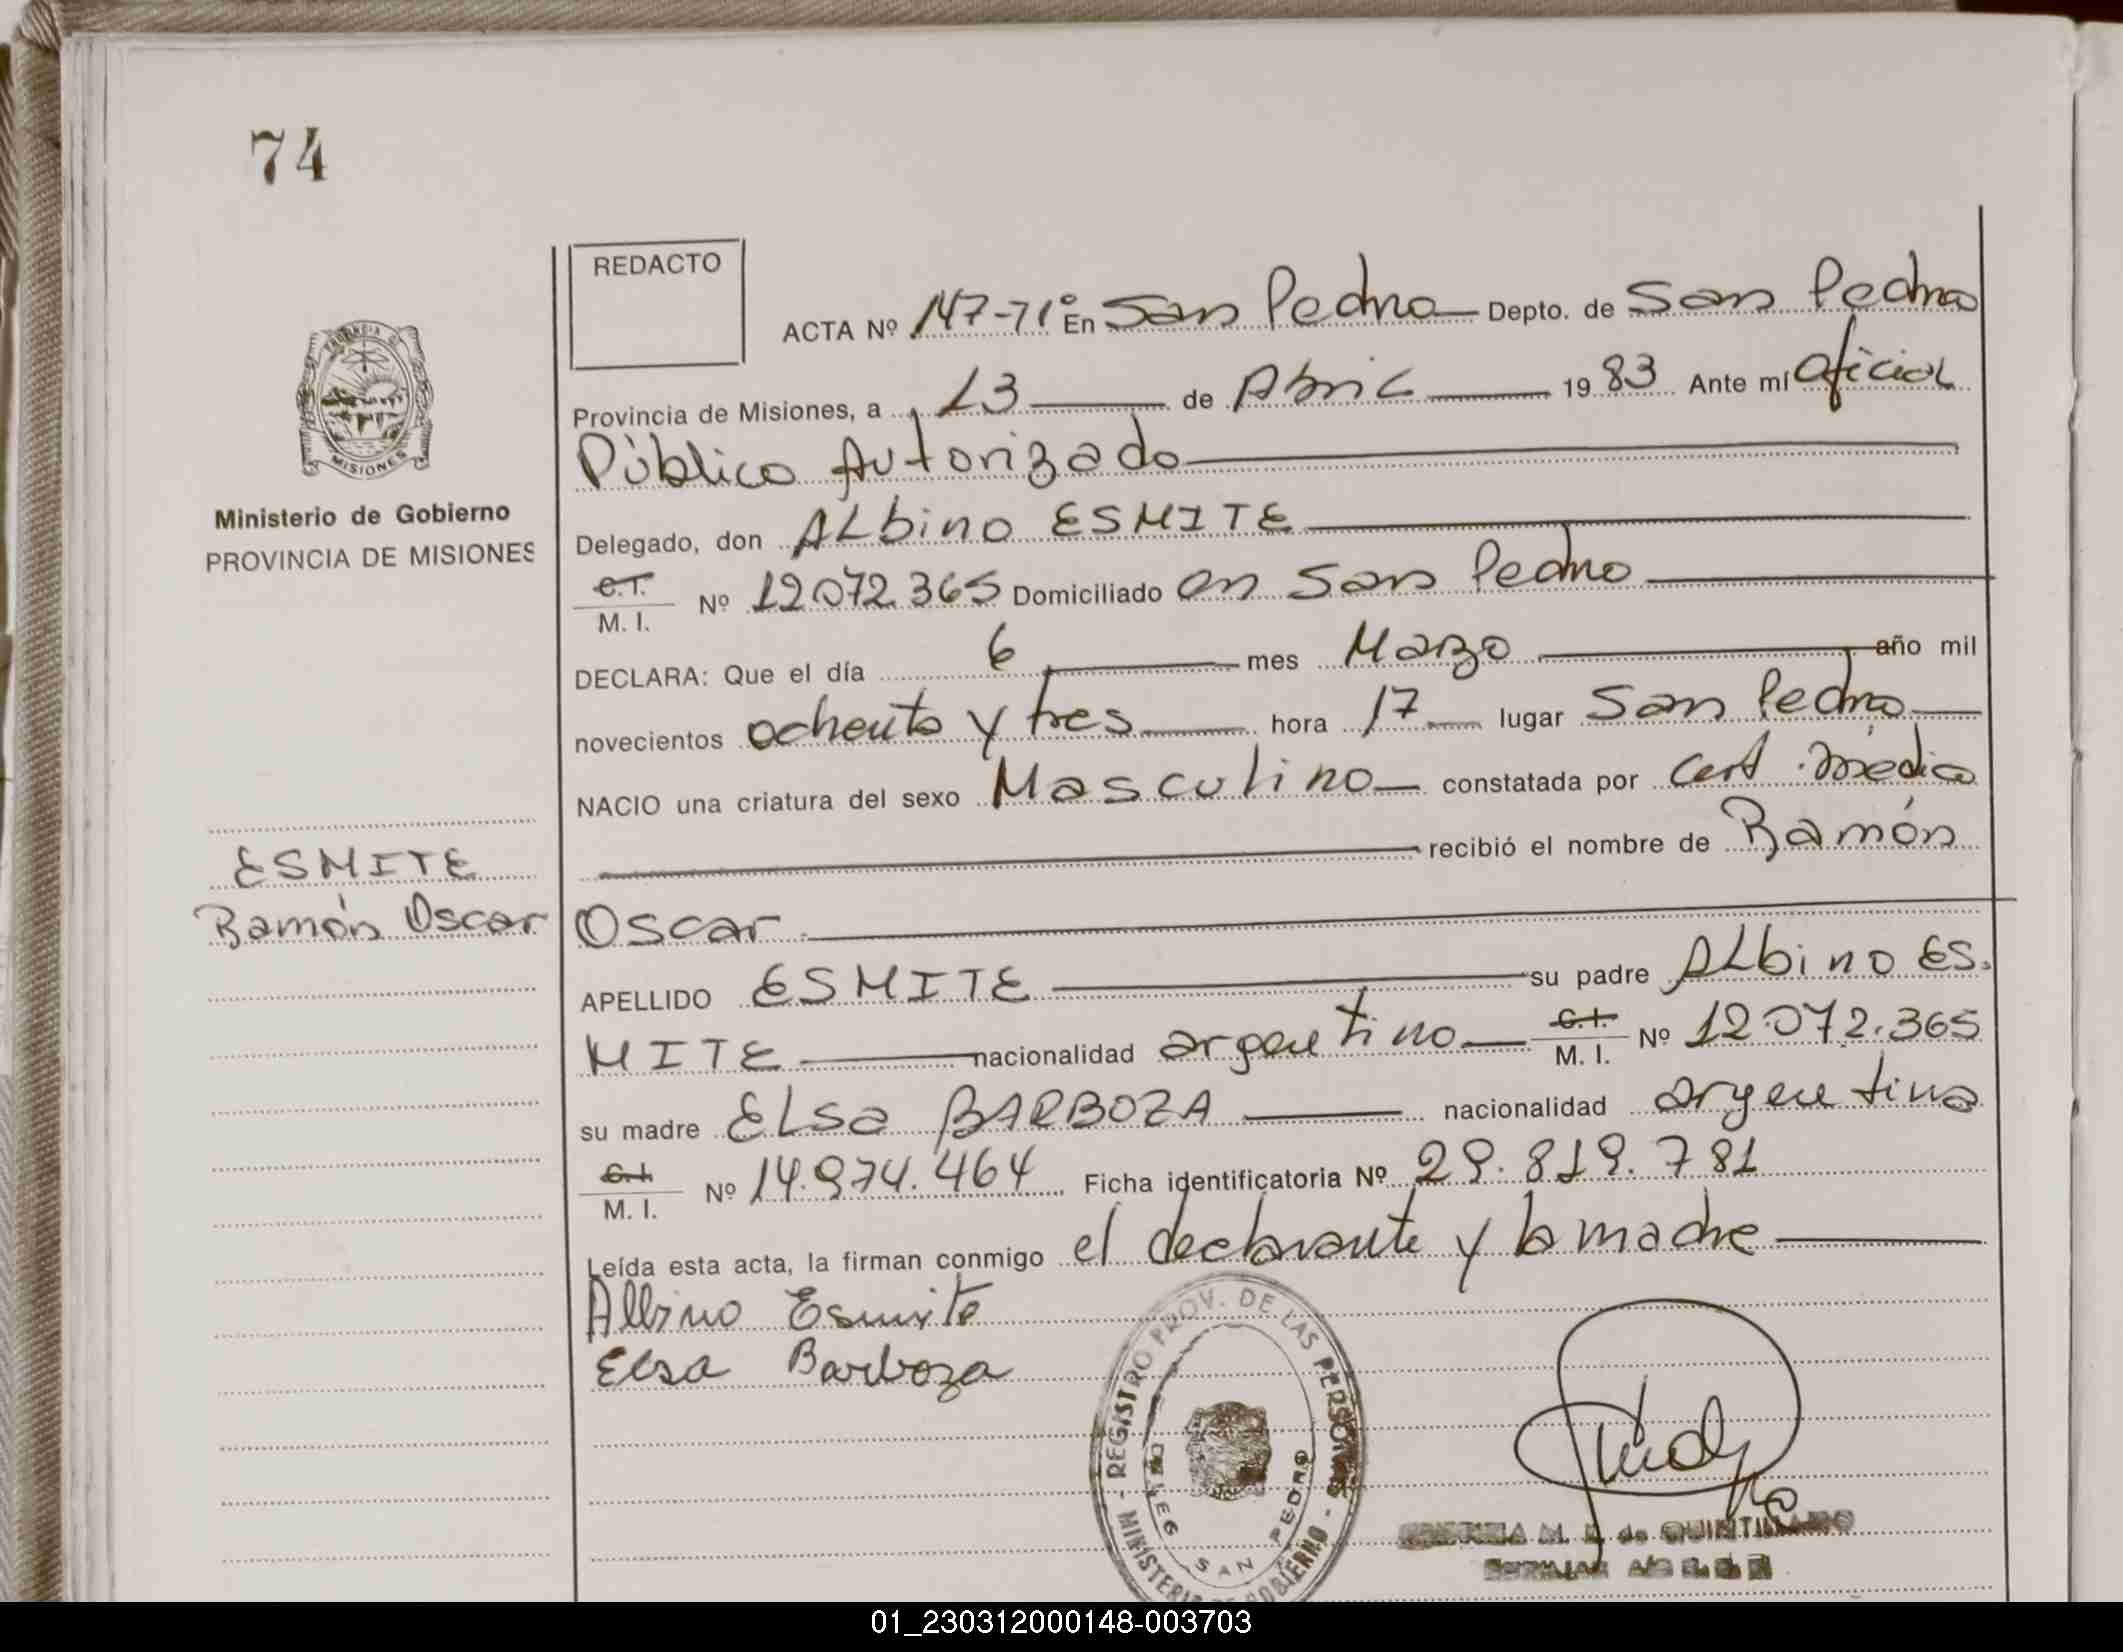 74
REDACTO
ACTA Nº 147-71º En San Pedro Depto. de San Pedro
Provincia de Misiones, a 13 de Abril 1983 Ante mí oficial
Público Autorizado
Delegado, don Albino ESMITE
C.I. M. I. Nº 12.072.365 Domiciliado en San Pedro
DECLARA: Que el día 6 mes Marzo año mil
novecientos ochenta y tres hora 17 lugar San Pedro
NACIO una criatura del sexo Masculino constatada por Cert. médico
recibió el nombre de Ramón
Oscar
APELLIDO ESMITE su padre Albino ES.
MITE nacionalidad argentino C.I. M. I. Nº 12.072.365
su madre Elsa BARBOZA nacionalidad argentina
C.I. M. I. Nº 14.974.464 Ficha identificatoria Nº 29.819.781
Leída esta acta, la firman conmigo el declarante y la madre
Albino Esmite
Elsa Barboza
PROVINCIA DE
MISIONES
Ministerio de Gobierno
PROVINCIA DE MISIONES
ESMITE
Ramón Oscar
REGISTRO PROV. DE LAS PERSONAS - MINISTERIO DE GOBIERNO -
DELEG SAN PEDRO
M. de QUINTILIANO
01_230312000148-003703